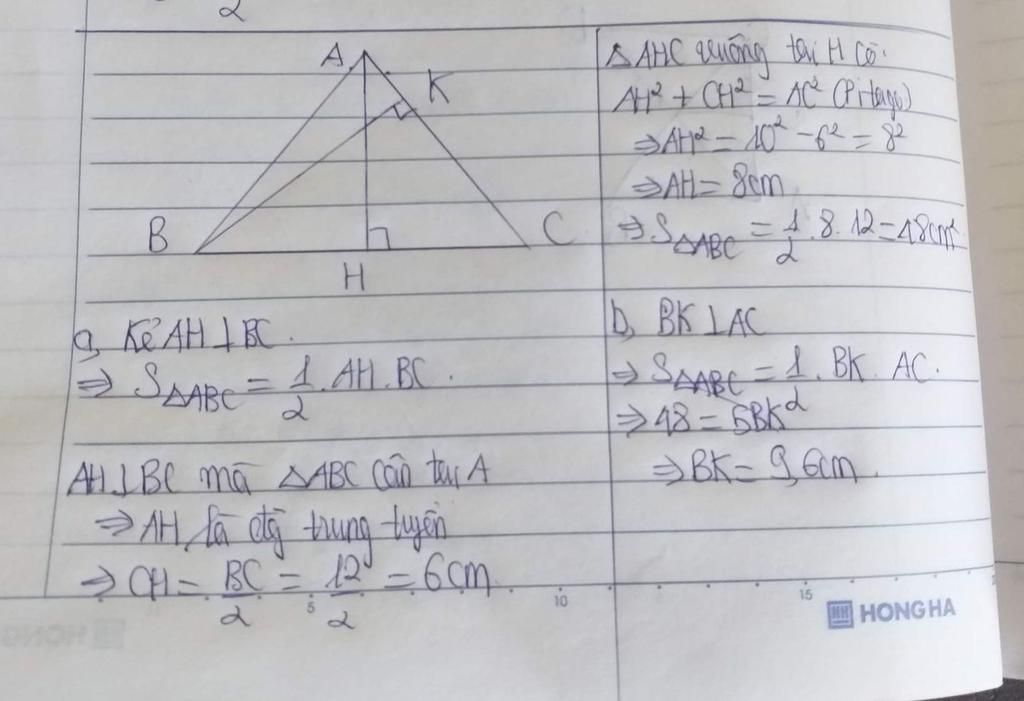 2
A
K
B
C
H
a, Kẻ AH ⊥ BC.
⇒ S△ABC = 1/2 . AH . BC.
AH ⊥ BC mà △ABC cân tại A
⇒ AH là đg trung tuyến
⇒ CH = BC/2 = 12/2 = 6cm
△AHC vuông tại H có:
AH² + CH² = AC² (Pitago)
⇒ AH² = 10² - 6² = 8²
⇒ AH = 8cm
⇒ S△ABC = 1/2 . 8 . 12 = 48cm²
b, BK ⊥ AC
⇒ S△ABC = 1/2 . BK . AC.
⇒ 48 = 5BK
⇒ BK = 9,6cm
5 10 15
HONG HA